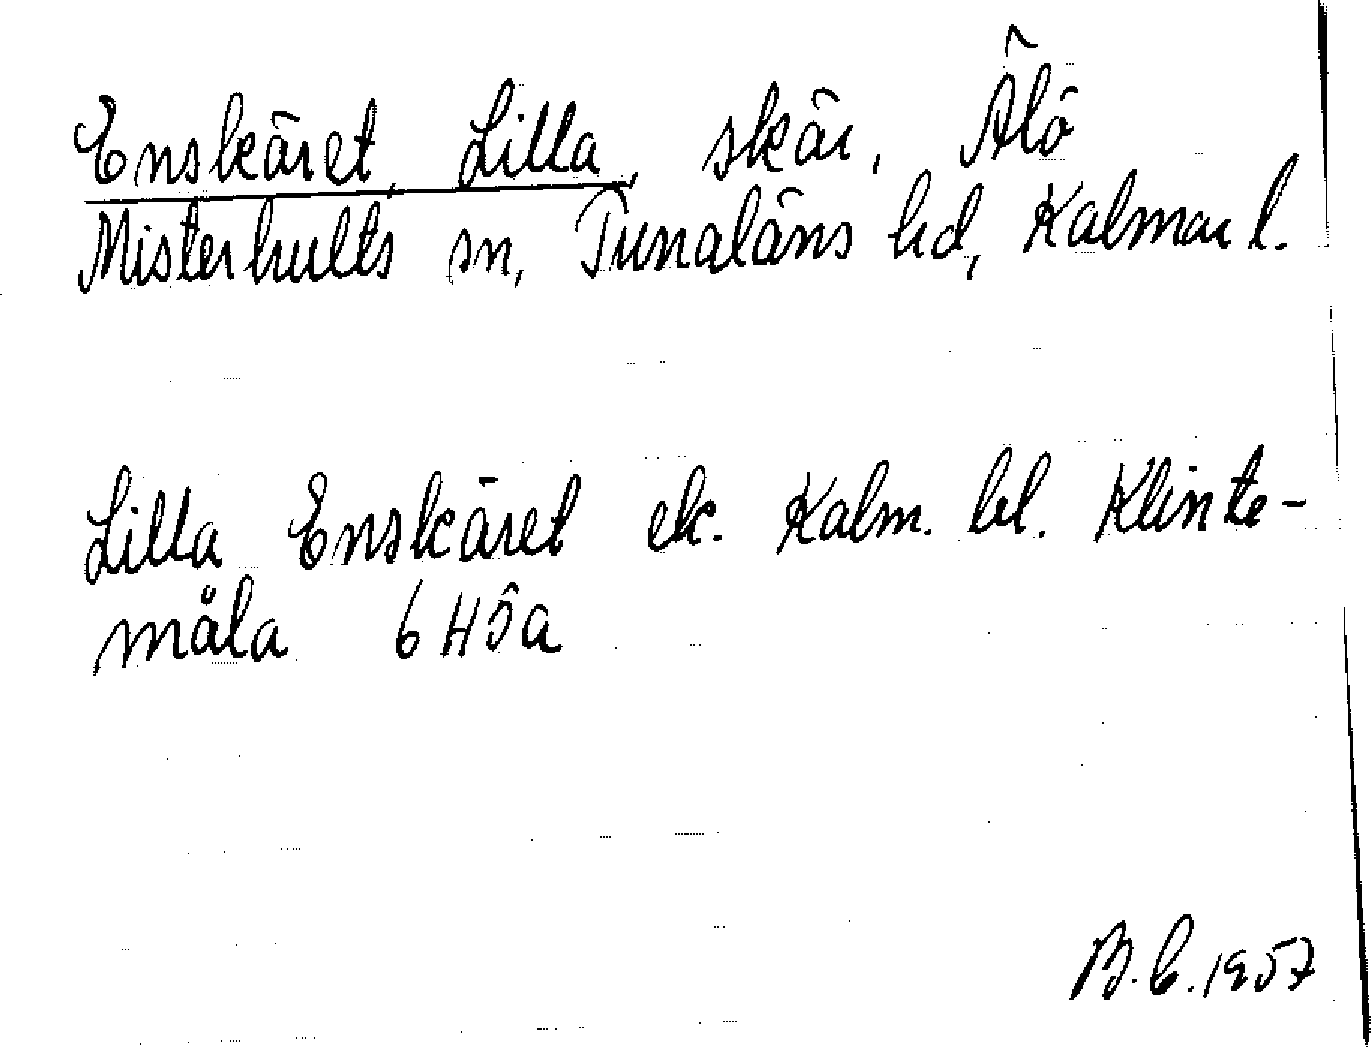 Enskäret, Lilla, skär, Älö
Misterhults sn, Tunaläns hd, Kalmar l.
Lilla Enskäret ek. Kalm. bl. Klinte-
måla 6H5a
B.C. 1957